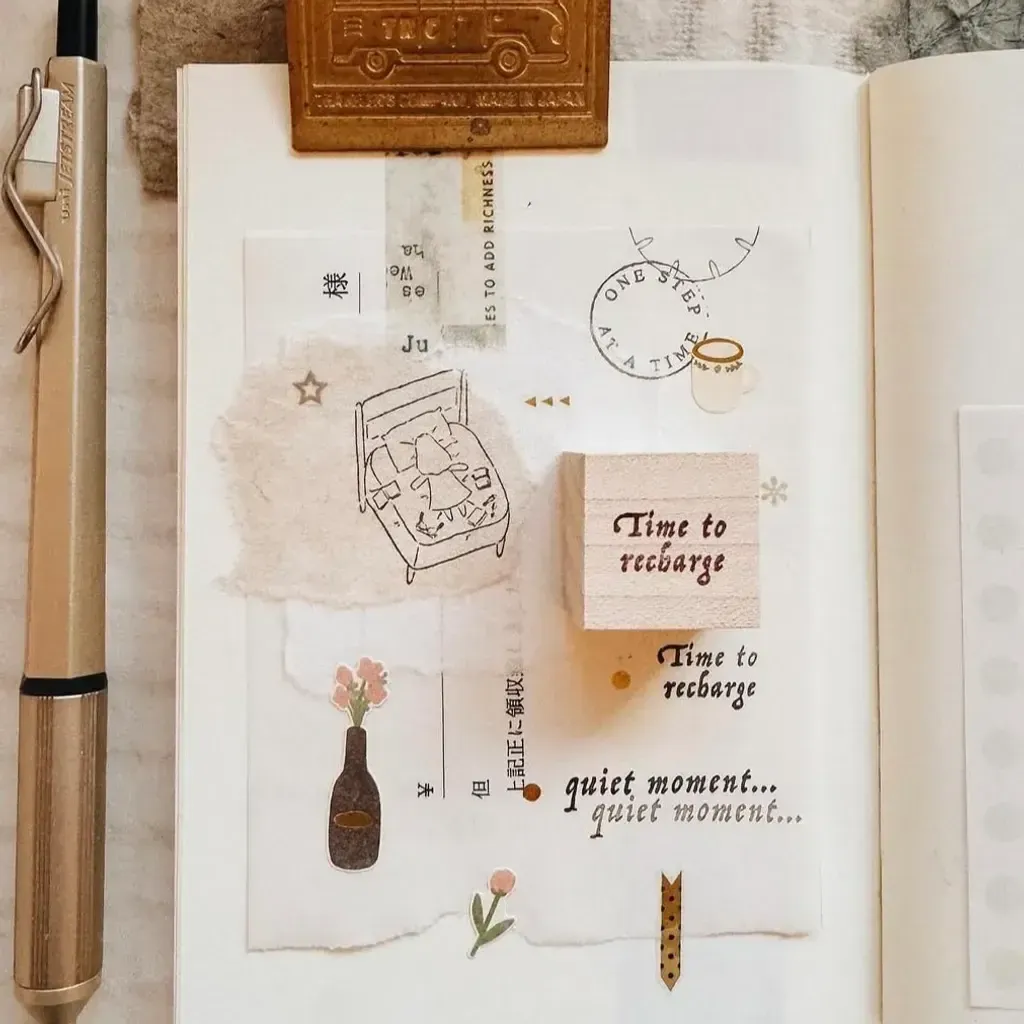 TRC
TRAVELER'S COMPANY, MADE IN JAPAN
uni JETSTREAM
ES TO ADD RICHNESS
We
es
Ju
様
ONE STEP
AT A TIME
Time to
recharge
Time to
recharge
上記正に領収
但
¥
quiet moment...
quiet moment...